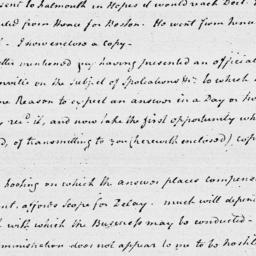 sent to Falmouth in Hopes it would reach
from Hence for Boston. He went from hence
I now enclose a copy—
mentioned you having presented an official
on the Subject of Spoliations &c. to which
Reason to expect an answer in a Day or
rec.d it, and now take the first opportunity
of transmitting to you (herewith enclosed)
footing on which the answer places
affords Scope for Delay. much will depend
with which the Business may be conducted—
administration does not appear to me to be